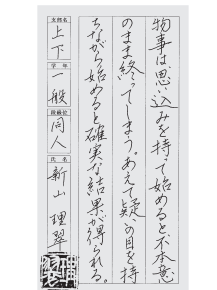 物事は、思い込みを持って始めると不本意
のまま終ってしまう。あえて疑いの目を持
ちながら始めると確実な結果が得られる。
支部名
上下
学年
一般
段級位
同人
氏名
新山理翠